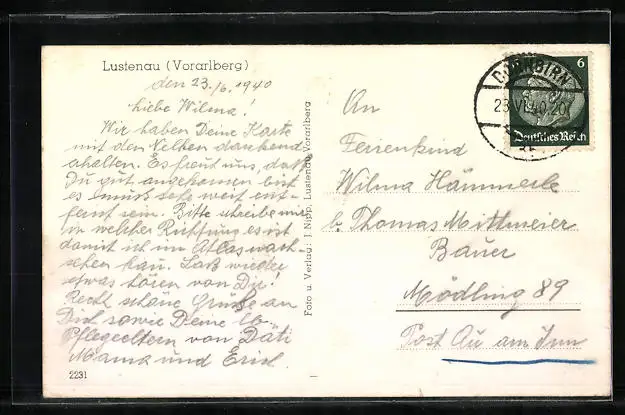 Lustenau (Vorarlberg)
den 23./6. 1940
Liebe Wilma!
Wir haben Deine Karte
mit den Nelken dankend
erhalten. Es freut uns, daß
Du gut angekommen bist
es muß sehr weit ent-
fernt sein. Bitte schreibe mir
in welcher Richtung es ist
damit ich im Atlas nach-
sehen kan. Laß wieder
etwas hören von Dir!
Recht schöne Grüße an
Dich sowie Deine lb.
Pflegeeltern von Däti
Mama und Erich.
2231
Foto u. Verlag: J. Nipp, Lustenau, Vorarlberg
DORNBIRN
23.VI.40.20
6
Deutsches Reich
An
Ferienkind
Wilma Hämmerle
b. Thomas Mittmeier
Bauer
Mödling 89
Post Au am Inn